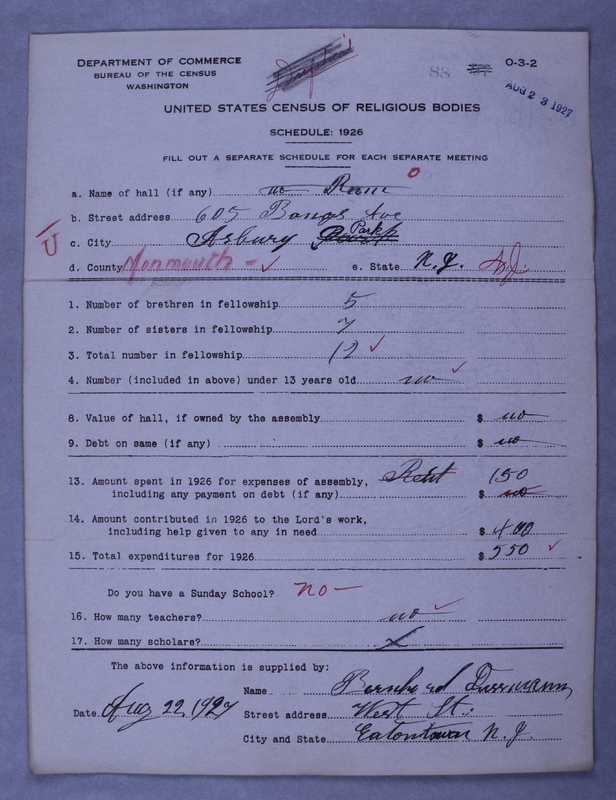 DEPARTMENT OF COMMERCE
BUREAU OF THE CENSUS
WASHINGTON
88
O-3-2
AUG 23 1927
UNITED STATES CENSUS OF RELIGIOUS BODIES
SCHEDULE: 1926
FILL OUT A SEPARATE SCHEDULE FOR EACH SEPARATE MEETING
a. Name of hall (if any) no
b. Street address 605 Bangs Ave
c. City Asbury Park
U
d. County Monmouth - ✓ e. State N. J.
1. Number of brethren in fellowship 5
2. Number of sisters in fellowship 7
3. Total number in fellowship 12 ✓
4. Number (included in above) under 13 years old no ✓
8. Value of hall, if owned by the assembly $ no
9. Debt on same (if any) $ no
13. Amount spent in 1926 for expenses of assembly, Rent 150
including any payment on debt (if any) $ no
14. Amount contributed in 1926 to the Lord's work,
including help given to any in need $ 400
15. Total expenditures for 1926 $ 550 ✓
Do you have a Sunday School? no -
16. How many teachers? no ✓
17. How many scholars? x
The above information is supplied by:
Name Bernhard
Date Aug 22, 1927 Street address West St.
City and State Eatontown N. J.